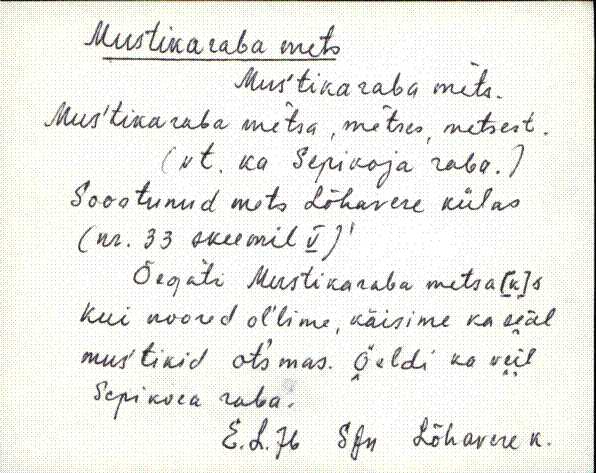 Mustikaraba mets
Mus'tikaraba mèts.
Mus'tikaraba mètsa, mètses, metsest.
(vt. ka Sepikoja raba.)
Soostunud mets Lõhavere külas
(nr. 33 skeemil V)
Mustikaraba metsa[k]s
kui noored ol'lime, käisime ka seäl
mus'tikid ots'mas. Öeldi ka veil
Sepikoea raba.
E.L. 76 Sjn Lõhavere k.